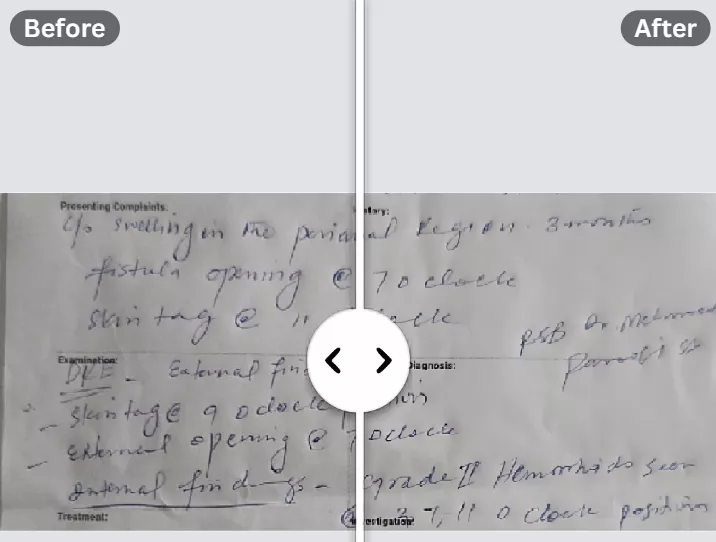 Before After
Presenting Complaints:
c/o swelling in the perianal Region - 3 months
fistula opening @ 7 o clock
skin tag @ 11
PSB Dr.
Examination: Diagnosis:
DRE - External
- skin tag @ 9 o clock
- External opening @ 7 o clock
Internal findings - grade II Hemorrhoids seen
@ 3, 7, 11 o clock position
Treatment: